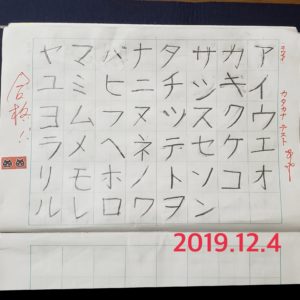 カタカナ テスト
アイウエオ
カキクケコ
サシスセソ
タチツテト
ナニヌネノ
ハヒフヘホ
マミムメモ
ヤユヨラリ
ルレロワヲン
合格!!
2019.12.4